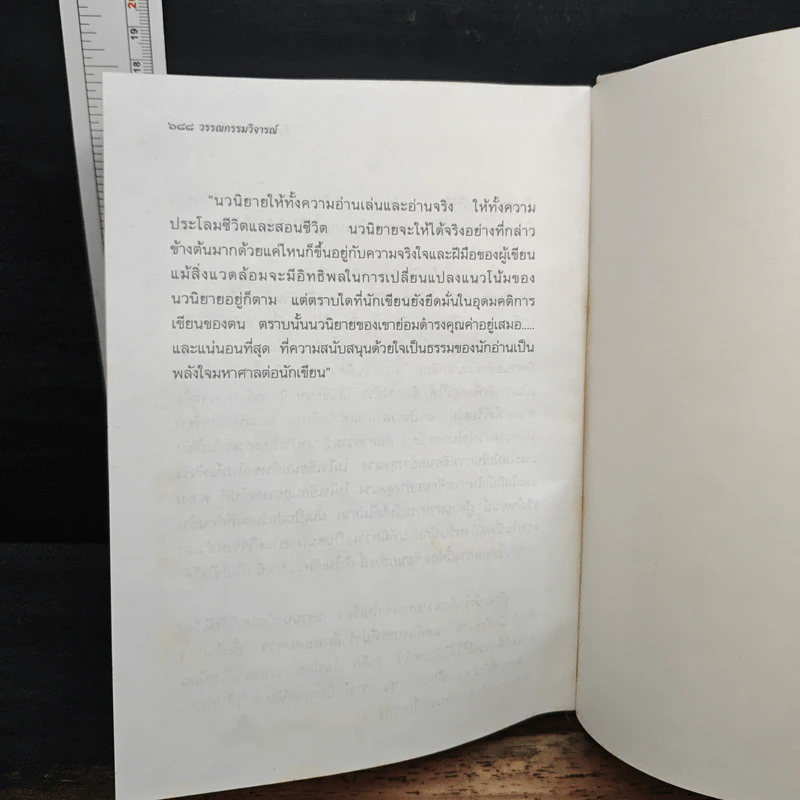 20
19
18
๖๘๘ วรรณกรรมวิจารณ์
"นวนิยายให้ทั้งความอ่านเล่นและอ่านจริง ให้ทั้งความ
ประโลมชีวิตและสอนชีวิต นวนิยายจะให้ได้จริงอย่างที่กล่าว
ข้างต้นมากด้วยแค่ไหนก็ขึ้นอยู่กับความจริงใจและฝีมือของผู้เขียน
แม้สิ่งแวดล้อมจะมีอิทธิพลในการเปลี่ยนแปลงแนวโน้มของ
นวนิยายอยู่ก็ตาม แต่ตราบใดที่นักเขียนยังยึดมั่นในอุดมคติการ
เขียนของตน ตราบนั้นนวนิยายของเขาย่อมดำรงคุณค่าอยู่เสมอ.....
และแน่นอนที่สุด ที่ความสนับสนุนด้วยใจเป็นธรรมของนักอ่านเป็น
พลังใจมหาศาลต่อนักเขียน"